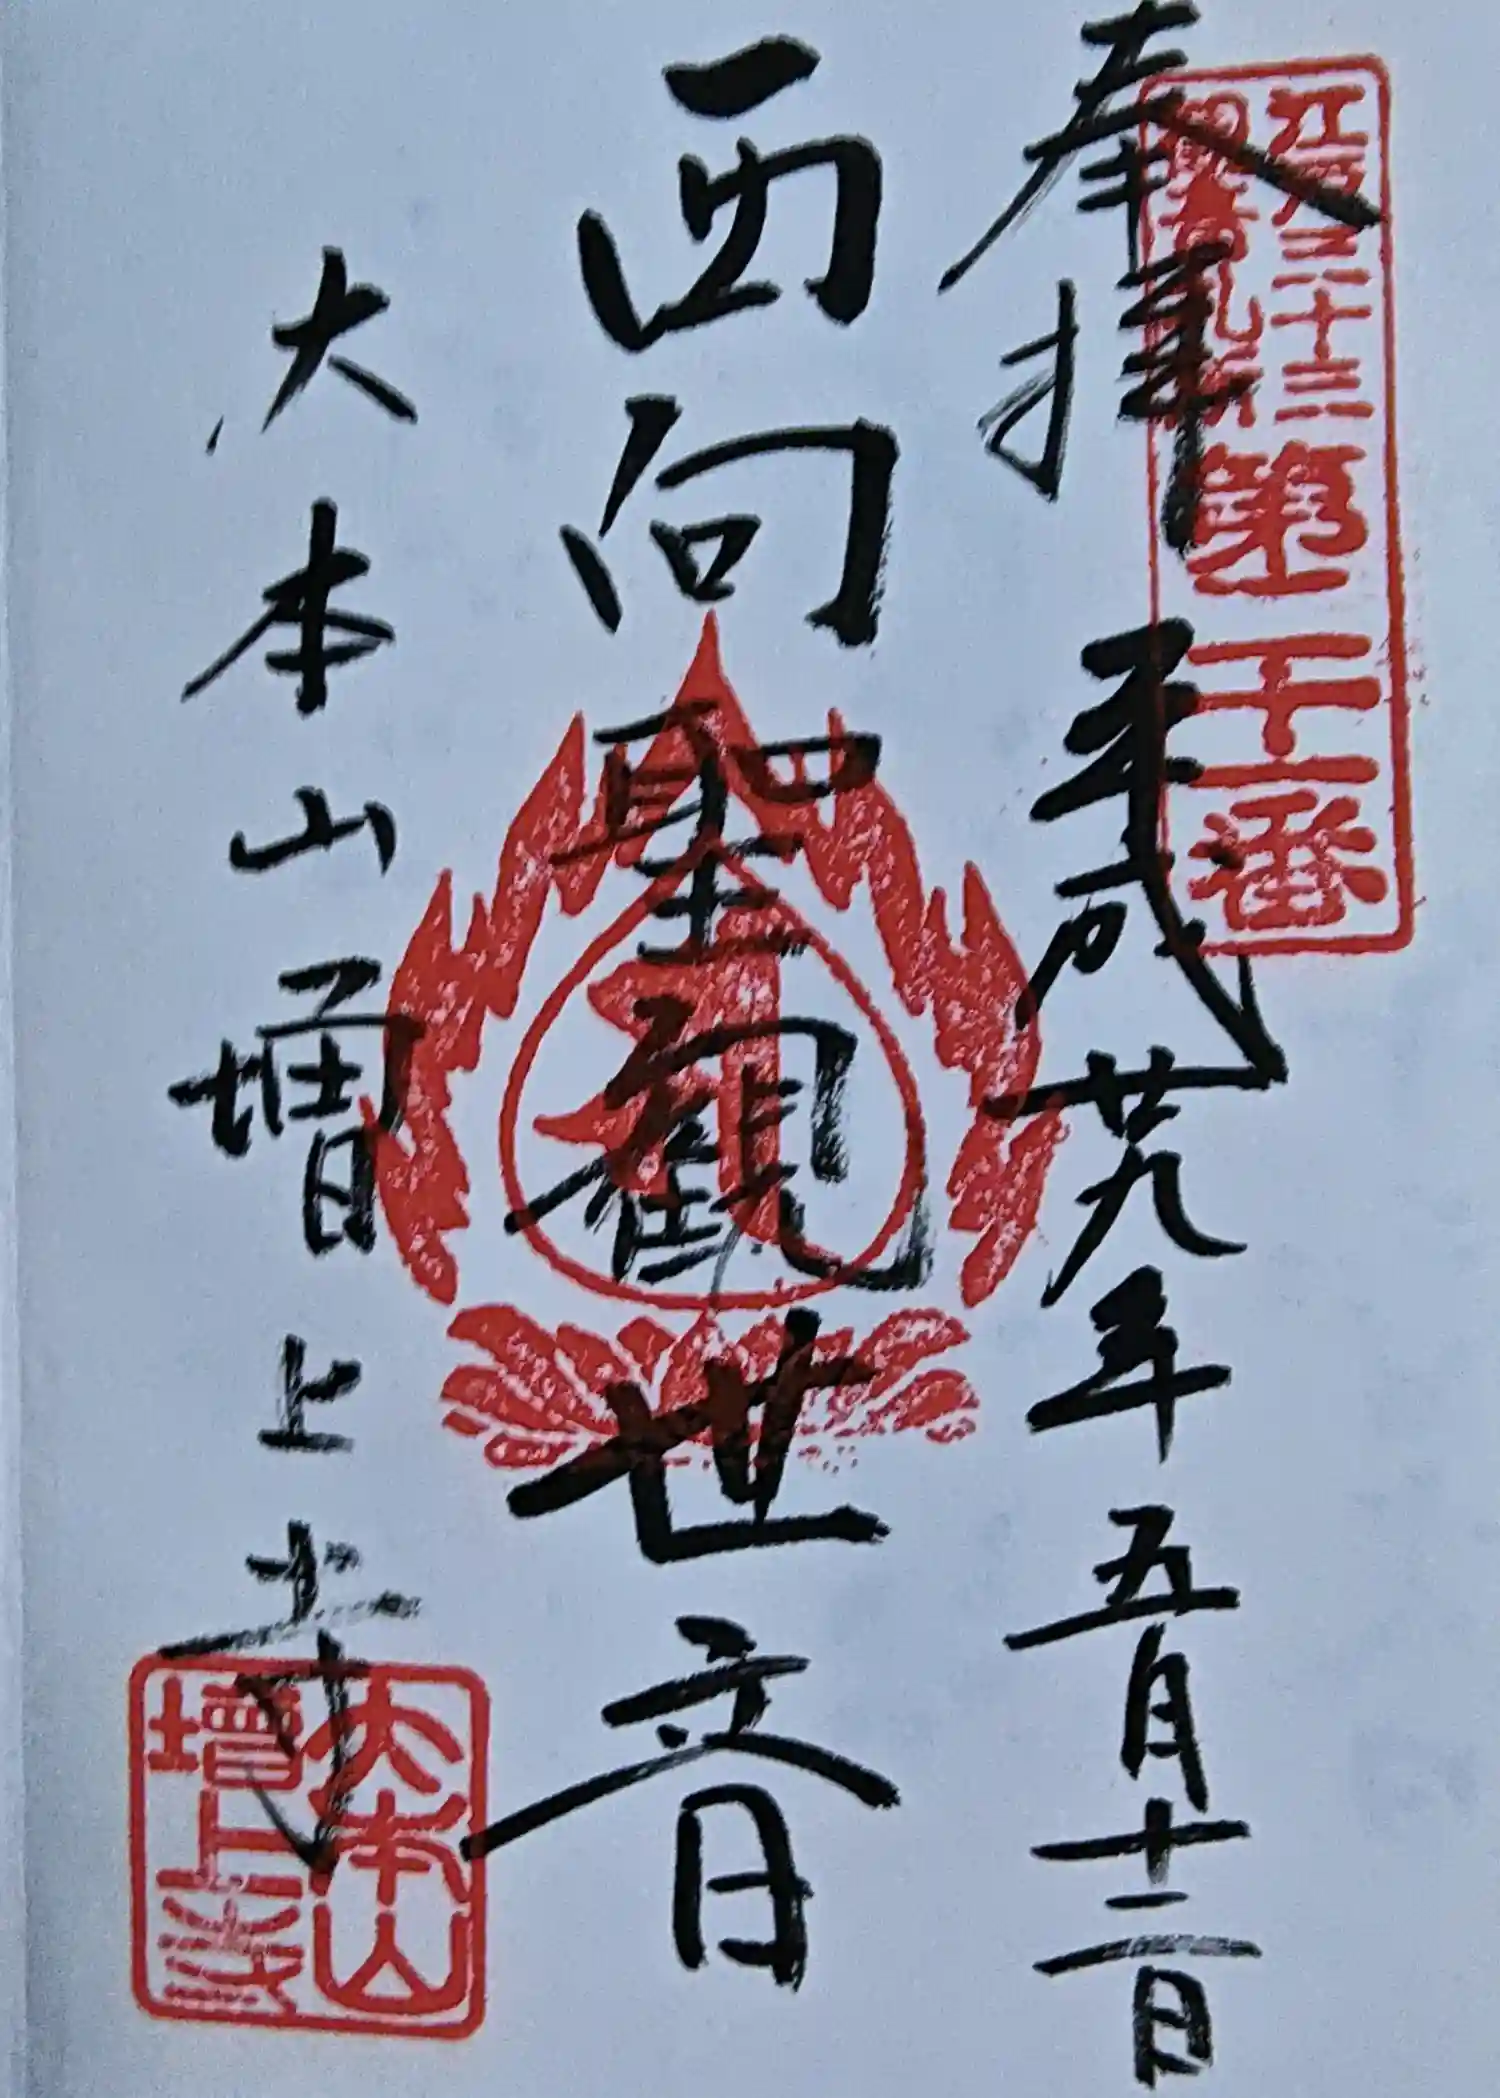 江戸三十三
觀音札所
第二十一番
奉拝 平成廿九年五月十二日
西向聖観世音
大本山増上寺
大本山
增上寺